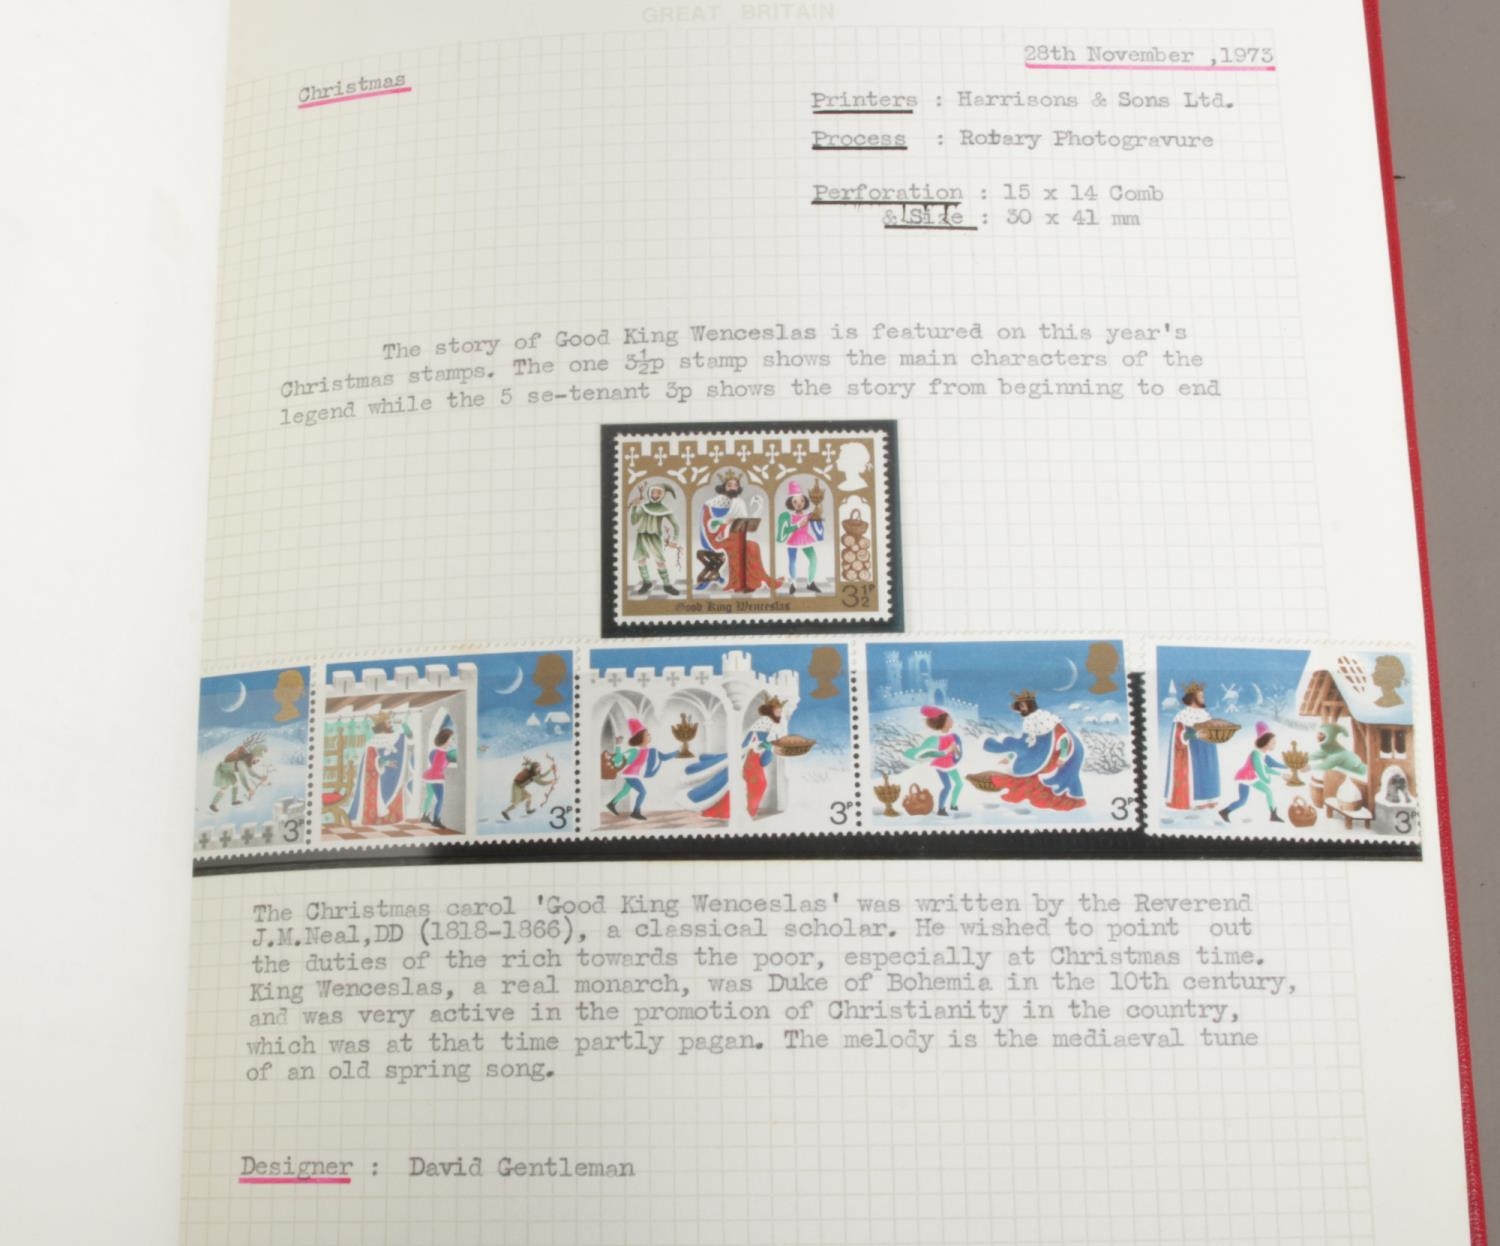 GREAT BRITAIN
Christmas
28th November ,1973
Printers : Harrisons & Sons Ltd.
Process : Rotary Photogravure
Perforation : 15 x 14 Comb
& Size : 30 x 41 mm
The story of Good King Wenceslas is featured on this year's
Christmas stamps. The one 3½p stamp shows the main characters of the
legend while the 5 se-tenant 3p shows the story from beginning to end
Good King Wenceslas
3½P
3P
3P
3P
3P
3P
The Christmas carol 'Good King Wenceslas' was written by the Reverend
J.M.Neal,DD (1818-1866), a classical scholar. He wished to point out
the duties of the rich towards the poor, especially at Christmas time.
King Wenceslas, a real monarch, was Duke of Bohemia in the 10th century,
and was very active in the promotion of Christianity in the country,
which was at that time partly pagan. The melody is the mediaeval tune
of an old spring song.
Designer : David Gentleman